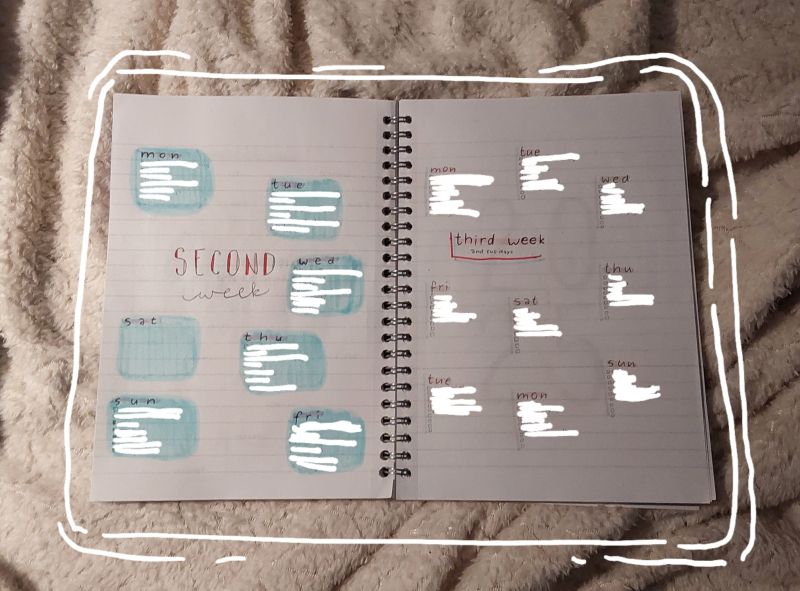 mon
tue
SECOND
week
wed
sat
thu
sun
fri
mon
tue
wed
third week
thu
fri
sat
sun
tue
mon